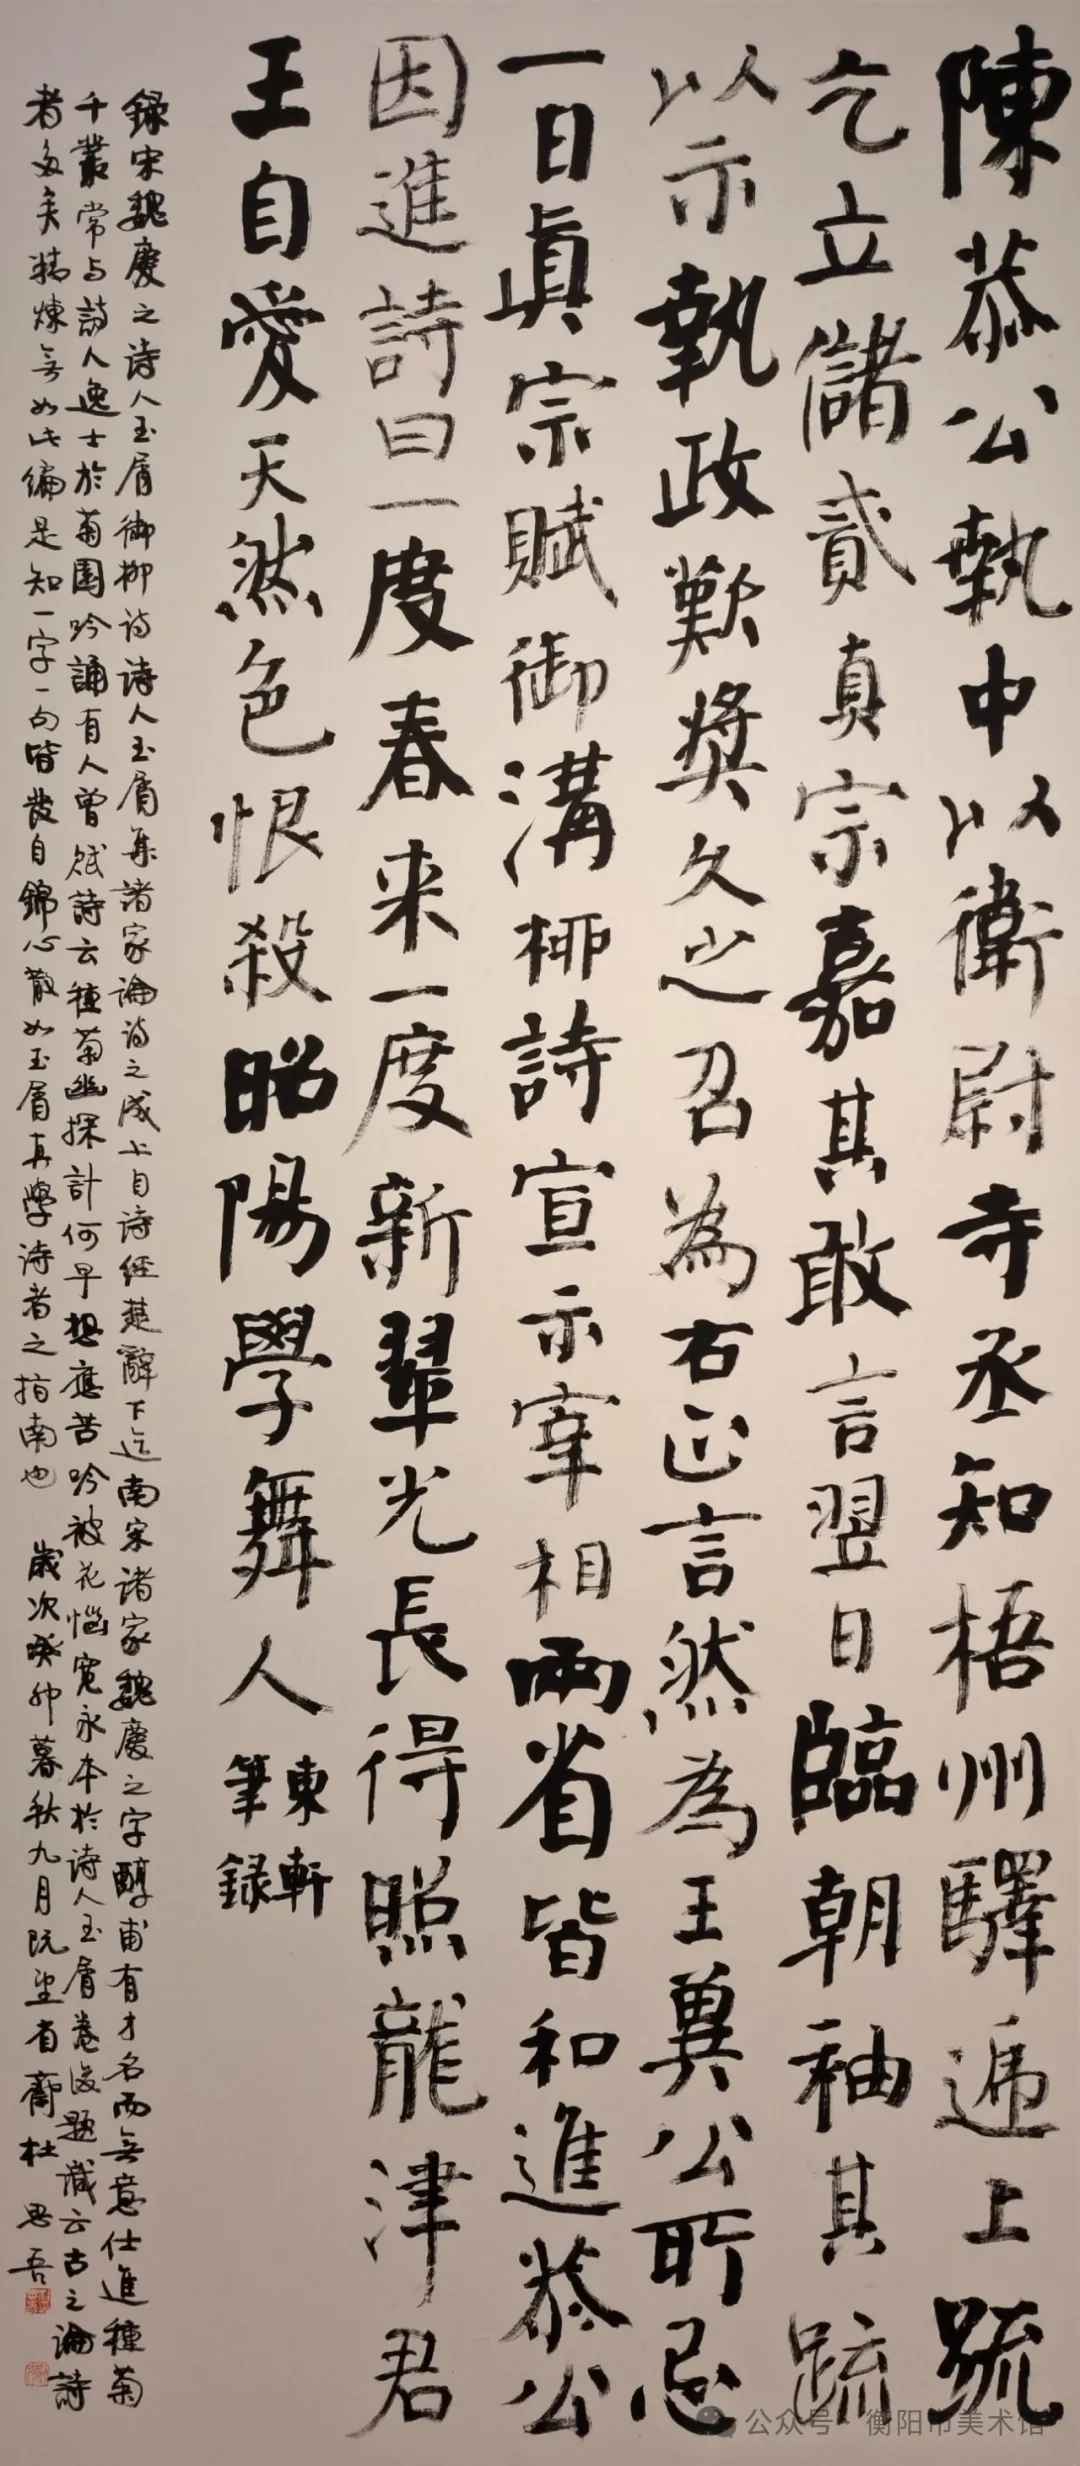 陳恭公執中以衛尉寺丞知梧州驛遞上疏
乞立儲貳真宗嘉其敢言翌日臨朝袖其疏
以示執政歎奨久之召為右正言然為王冀公所忌
一日真宗賦御溝柳詩宣示宰相兩省皆和進恭公
因進詩曰一度春来一度新翠光長得照龍津君
王自愛天然色恨殺昭陽學舞人
東軒
筆録
録宋魏慶之诗人玉屑御柳诗诗人玉屑集諸家論诗之成上自诗经楚辭下迄南宋诸家魏慶之字醇甫有才名而無意仕進種菊
千叢常与詩人逸士於菊園吟誦有人曾賦詩云種菊幽探計何早想應苦吟被花惱寬永本於诗人玉屑卷後題識云古之論詩
者多矣精煉無如此编是知一字一句皆發自錦心散如玉屑真學诗者之指南也 歲次癸卯暮秋九月阮堂有齋杜思吾
公众号 衡阳市美术馆